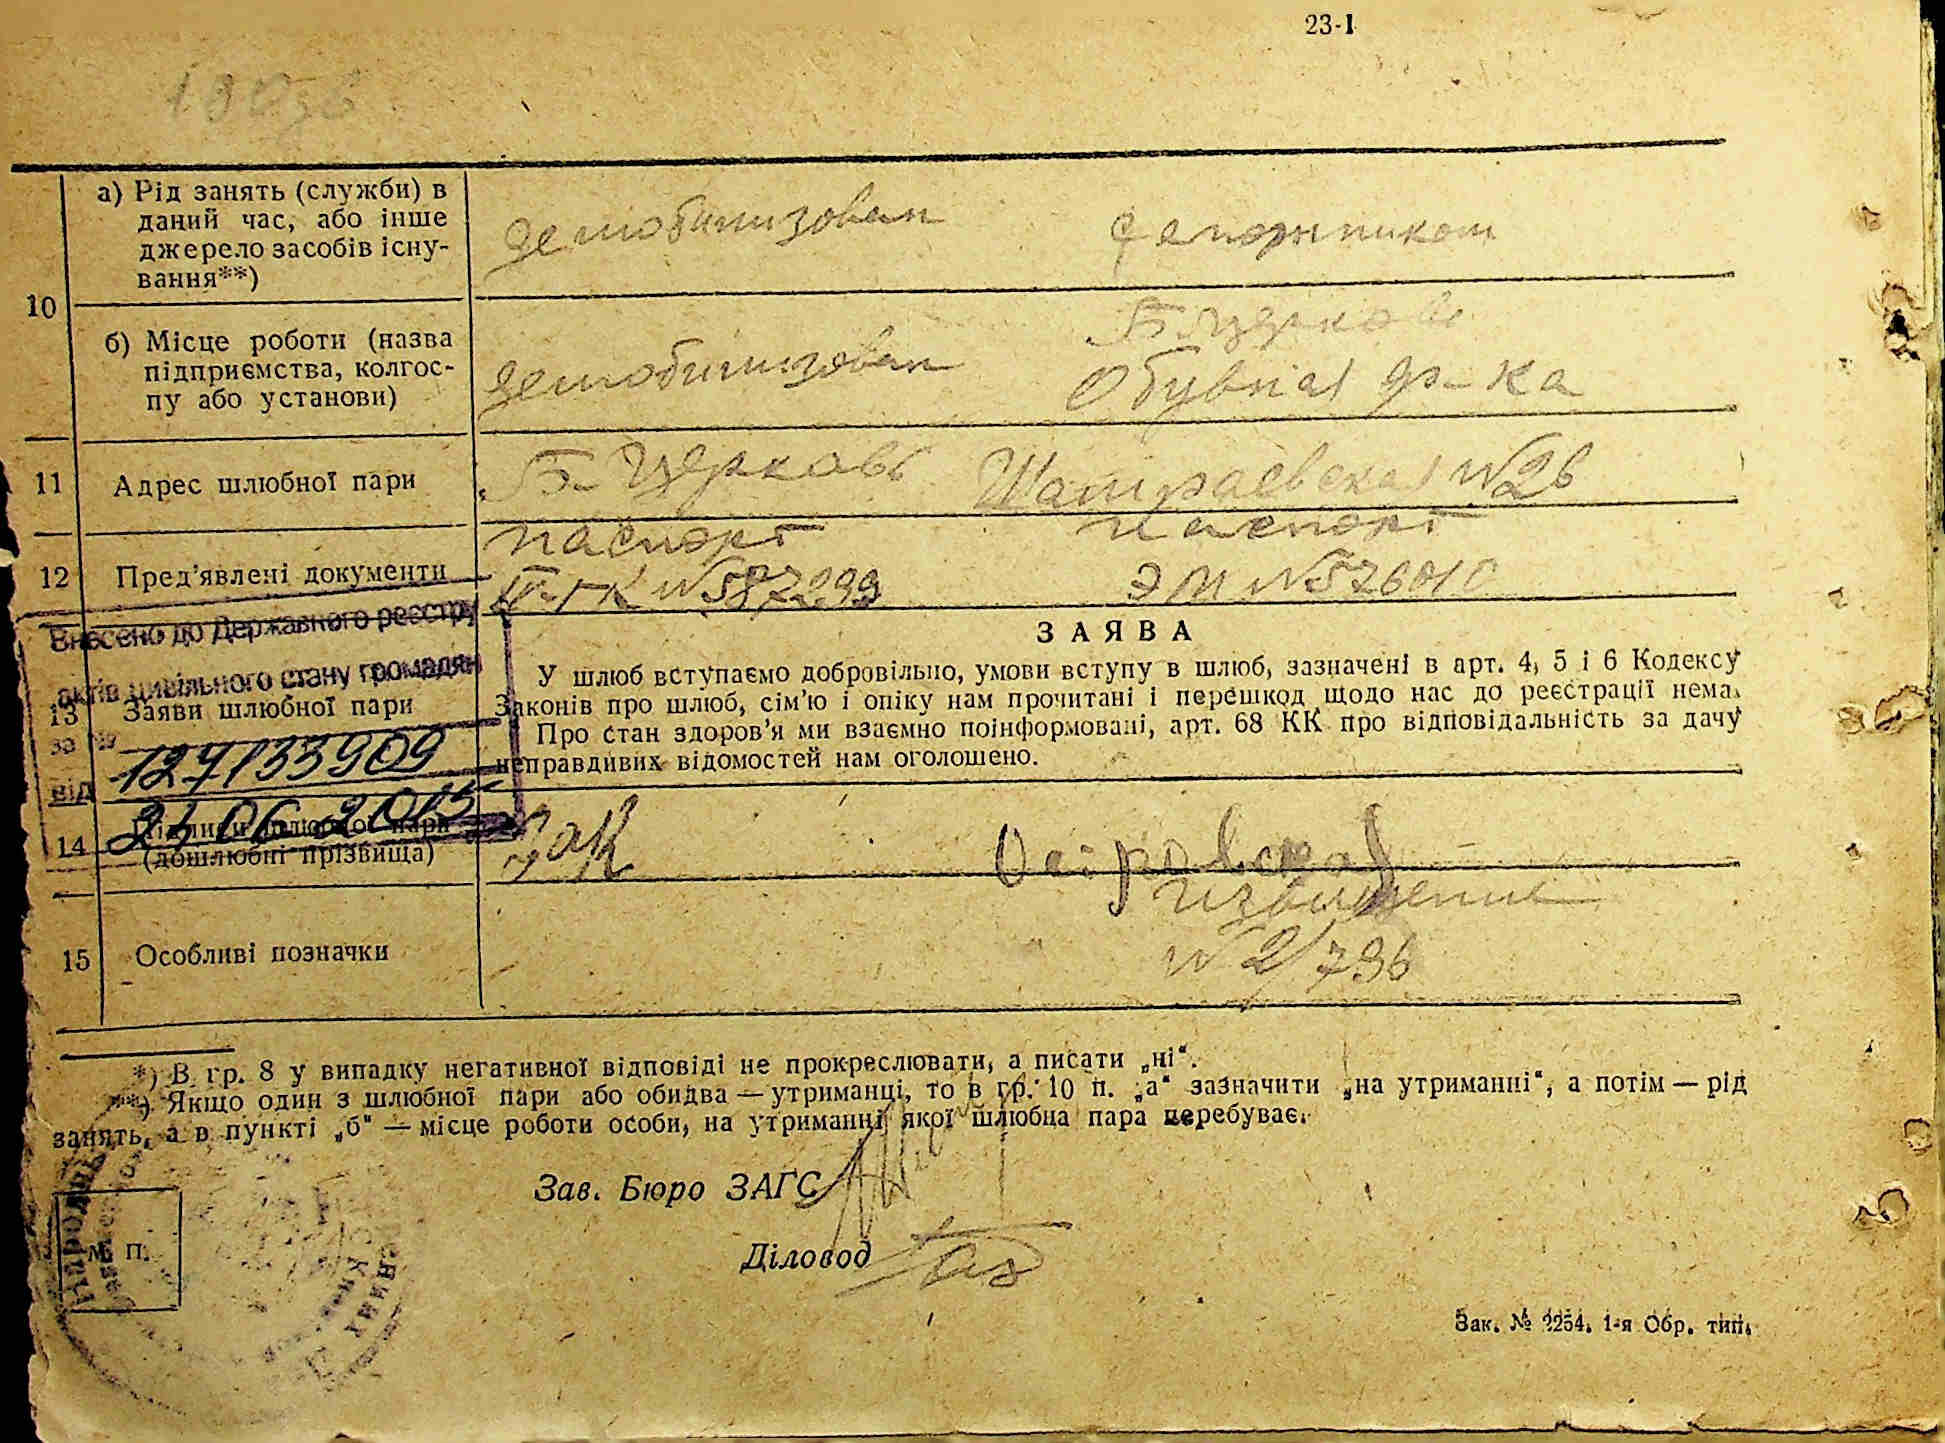 23-1
10
а) Рід занять (служби) в
даний час, або інше
джерело засобів існу-
вання**)
демобилизован
б) Місце роботи (назва
підприємства, колгос-
пу або установи)
демобилизован
Б Церковь
Обувная ф-ка
11 Адрес шлюбної пари Б-Церковь №26
12 Пред’явлені документи
паспорт паспорт
№587299 ЭМ №576010
Внесено до Державного реєстру
актів цивільного стану громадян
за №
127133909
від
ЗАЯВА
13 Заяви шлюбної пари
У шлюб вступаємо добровільно, умови вступу в шлюб, зазначені в арт. 4, 5 і 6 Кодексу
Законів про шлюб, сім’ю і опіку нам прочитані і перешкод щодо нас до реєстрації нема.
Про стан здоров’я ми взаємно поінформовані, арт. 68 КК про відповідальність за дачу
неправдивих відомостей нам оголошено.
14 Підписи шлюбної пари
(дошлюбні прізвища)
Островская
15 Особливі позначки
извещение
№ 2/736
*) В гр. 8 у випадку негативної відповіді не прокреслювати, а писати „ні“.
**) Якщо один з шлюбної пари або обидва — утриманці, то в гр. 10 п. „а“ зазначити „на утриманні“, а потім — рід
занять, а в пункті „б“ — місце роботи особи, на утриманні якої шлюбна пара перебуває.
Зав. Бюро ЗАГС
Діловод
М. П.
Зак. № 2254. 1-я Обр. тип.